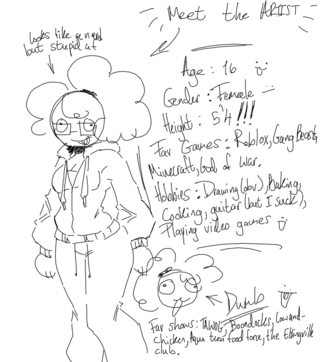 Meet the ARTIST
looks like a nerd
but stupid af
Age : 16
Gender : Female
Height : 5'4 !!!
Fav Games : Roblox, Gang Beasts,
Minecraft, God of war.
Hobbies : Drawing (obv), Baking,
Cooking, guitar (but I suck),
Playing video games
Dumb
Fav shows: TAWOG, Boondocks, Cow and
Chicken, Aqua teen food force, the Eltingville
club.